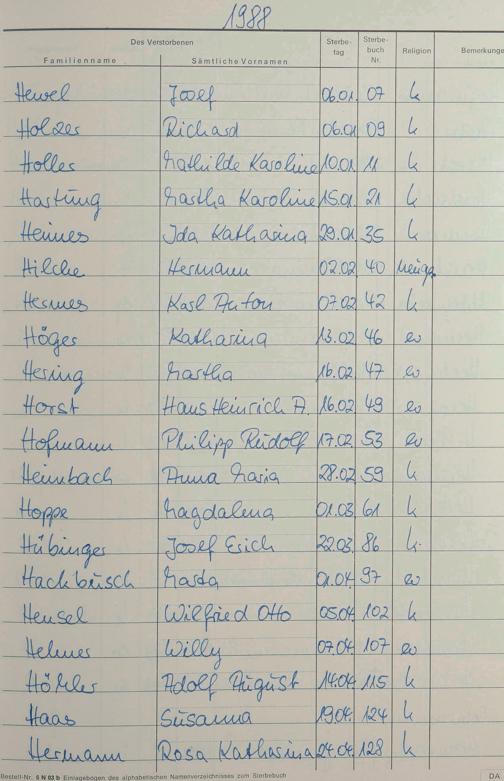 1988
Des Verstorbenen
Familienname Sämtliche Vornamen Sterbe-tag Sterbe-buch Nr. Religion Bemerkunge
Hewel Josef 06.01. 07 k
Holzer Richard 06.01 09 k
Holler Mathilde Karoline 10.01 11 k
Hartung Martha Karoline 15.01. 21 k
Heimes Ida Katharina 29.01 35 k
Hilche Hermann 02.02 40
Hermes Karl Anton 07.02 42 k
Höger Katharina 13.02 46 ev
Hering Martha 16.02 47 ev
Horst Hans Heinrich A. 16.02 49 ev
Hofmann Philipp Rudolf 17.02 53 ev
Heimbach Anna Maria 28.02 59 k
Hoppe Magdalena 01.03 61 k
Hübinger Josef Erich 22.03. 86 k.
Hackbusch Marta 01.04. 97 ev
Hensel Wilfried Otto 05.04. 102 k
Helmer Willy 07.04. 107 ev
Höhler Adolf August 14.04. 115 k
Haas Susanna 19.04. 124 k
Hermann Rosa Katharina 24.04. 128 k
Bestell-Nr. S N 03 b Einlagebogen des alphabetischen Namenverzeichnisses zum Sterbebuch DA